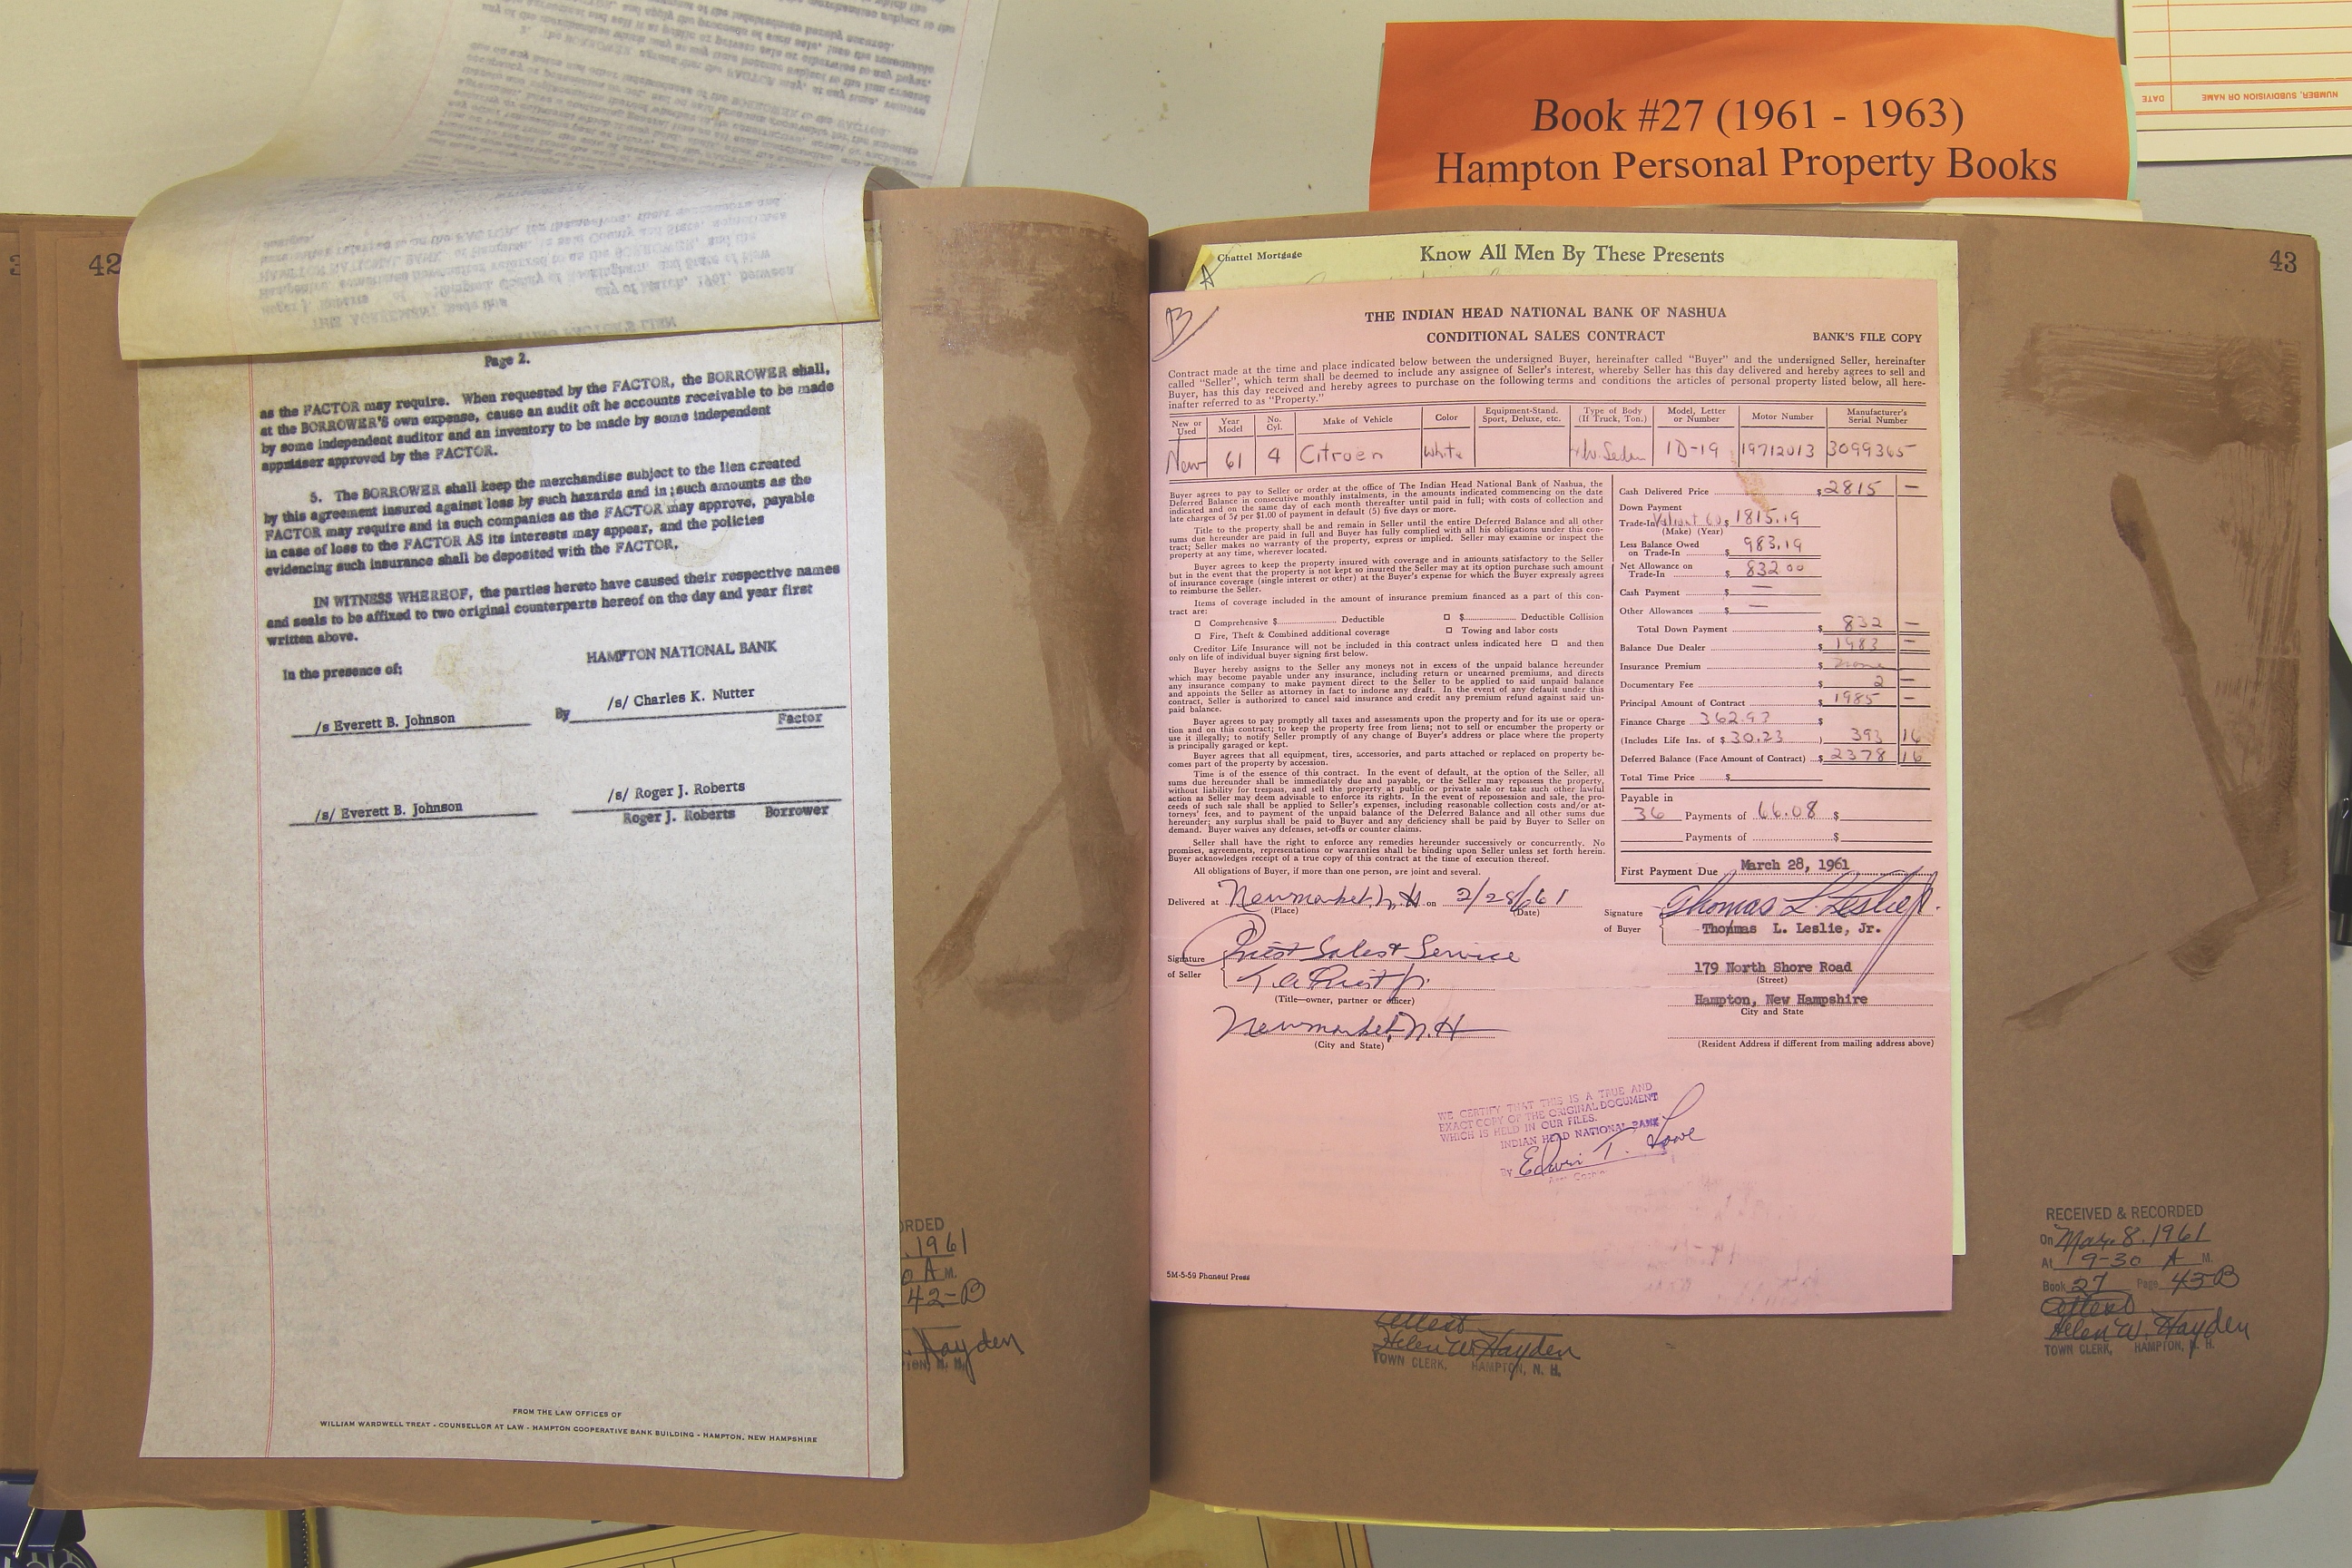 Book #27 (1961 - 1963)
Hampton Personal Property Books
DATE
NUMBER, SUBDIVISION OR NAME
42
THIS AGREEMENT made this day of March, 1961, between
Page 2.
as the FACTOR may require. When requested by the FACTOR, the BORROWER shall,
at the BORROWER'S own expense, cause an audit oft he accounts receivable to be made
by some independent auditor and an inventory to be made by some independent
appraiser approved by the FACTOR.
5. The BORROWER shall keep the merchandise subject to the lien created
by this agreement insured against loss by such hazards and in such amounts as the
FACTOR may require and in such companies as the FACTOR may approve, payable
in case of loss to the FACTOR AS its interests may appear, and the policies
evidencing such insurance shall be deposited with the FACTOR.
IN WITNESS WHEREOF, the parties hereto have caused their respective names
and seals to be affixed to two original counterparts hereof on the day and year first
written above.
In the presence of:
HAMPTON NATIONAL BANK
/s Everett B. Johnson
By /s/ Charles K. Nutter
Factor
/s/ Everett B. Johnson
/s/ Roger J. Roberts
Roger J. Roberts Borrower
FROM THE LAW OFFICES OF
WILLIAM WARDWELL TREAT - COUNSELLOR AT LAW - HAMPTON COOPERATIVE BANK BUILDING - HAMPTON, NEW HAMPSHIRE
ORDED
. 1961
0 A M.
42-B
. Hayden
43
Chattel Mortgage
Know All Men By These Presents
A
B
THE INDIAN HEAD NATIONAL BANK OF NASHUA
CONDITIONAL SALES CONTRACT
BANK'S FILE COPY
Contract made at the time and place indicated below between the undersigned Buyer, hereinafter called "Buyer" and the undersigned Seller, hereinafter
called "Seller", which term shall be deemed to include any assignee of Seller's interest, whereby Seller has this day delivered and hereby agrees to sell and
Buyer, has this day received and hereby agrees to purchase on the following terms and conditions the articles of personal property listed below, all here-
inafter referred to as "Property."
New or Used Year Model No. Cyl. Make of Vehicle Color Equipment-Stand. Sport, Deluxe, etc. Type of Body (If Truck, Ton.) Model, Letter or Number Motor Number Manufacturer's Serial Number
New 61 4 Citroen White Sedan ID-19 19712013 3099365
Buyer agrees to pay to Seller or order at the office of The Indian Head National Bank of Nashua, the
Deferred Balance in consecutive monthly instalments, in the amounts indicated commencing on the date
indicated and on the same day of each month thereafter until paid in full; with costs of collection and
late charges of 5¢ per $1.00 of payment in default (5) five days or more.
Title to the property shall be and remain in Seller until the entire Deferred Balance and all other
sums due hereunder are paid in full and Buyer has fully complied with all his obligations under this con-
tract; Seller makes no warranty of the property, express or implied. Seller may examine or inspect the
property at any time, wherever located.
Buyer agrees to keep the property insured with coverage and in amounts satisfactory to the Seller
but in the event that the property is not kept so insured the Seller may at its option purchase such amount
of insurance coverage (single interest or other) at the Buyer's expense for which the Buyer expressly agrees
to reimburse the Seller.
Items of coverage included in the amount of insurance premium financed as a part of this con-
tract are:
☐ Comprehensive $ Deductible ☐ $ Deductible Collision
☐ Fire, Theft & Combined additional coverage ☐ Towing and labor costs
Creditor Life Insurance will not be included in this contract unless indicated here ☐ and then
only on life of individual buyer signing first below.
Buyer hereby assigns to the Seller any moneys not in excess of the unpaid balance hereunder
which may become payable under any insurance, including return or unearned premiums, and directs
any insurance company to make payment direct to the Seller to be applied to said unpaid balance
and appoints the Seller as attorney in fact to indorse any draft. In the event of any default under this
contract, Seller is authorized to cancel said insurance and credit any premium refund against said un-
paid balance.
Buyer agrees to pay promptly all taxes and assessments upon the property and for its use or opera-
tion and on this contract; to keep the property free from liens; not to sell or encumber the property or
use it illegally; to notify Seller promptly of any change of Buyer's address or place where the property
is principally garaged or kept.
Buyer agrees that all equipment, tires, accessories, and parts attached or replaced on property be-
comes part of the property by accession.
Time is of the essence of this contract. In the event of default, at the option of the Seller, all
sums due hereunder shall be immediately due and payable, or the Seller may repossess the property,
without liability for trespass, and sell the property at public or private sale or take such other lawful
action as Seller may deem advisable to enforce its rights. In the event of repossession and sale, the pro-
ceeds of such sale shall be applied to Seller's expenses, including reasonable collection costs and/or at-
torneys' fees, and to payment of the unpaid balance of the Deferred Balance and all other sums due
hereunder; any surplus shall be paid to Buyer and any deficiency shall be paid by Buyer to Seller on
demand. Buyer waives any defenses, set-offs or counter claims.
Seller shall have the right to enforce any remedies hereunder successively or concurrently. No
promises, agreements, representations or warranties shall be binding upon Seller unless set forth herein.
Buyer acknowledges receipt of a true copy of this contract at the time of execution thereof.
All obligations of Buyer, if more than one person, are joint and several.
Cash Delivered Price $ 2815 —
Down Payment
Trade-In Valiant 60 $ 1815.19
(Make) (Year)
Less Balance Owed
on Trade-In $ 983.19
Net Allowance on
Trade-In $ 832 00
Cash Payment $ —
Other Allowances $ —
Total Down Payment $ 832 —
Balance Due Dealer $ 1983 —
Insurance Premium $ None
Documentary Fee $ 2 —
Principal Amount of Contract $ 1985 —
Finance Charge 362.93 $
(Includes Life Ins. of $ 30.23 ) 393 16
Deferred Balance (Face Amount of Contract) $ 2378 16
Total Time Price $
Payable in
36 Payments of 66.08 $
Payments of $
First Payment Due March 28, 1961
Delivered at Newmarket, N.H on 2/28/61
(Place) (Date)
Signature of Buyer Thomas L. Leslie Jr.
Thomas L. Leslie, Jr.
179 North Shore Road
(Street)
Hampton, New Hampshire
City and State
(Resident Address if different from mailing address above)
Signature of Seller Priest Sales & Service
Priest Jr.
(Title—owner, partner or officer)
Newmarket, N.H
(City and State)
WE CERTIFY THAT THIS IS A TRUE AND
EXACT COPY OF THE ORIGINAL DOCUMENT
WHICH IS HELD IN OUR FILES.
INDIAN HEAD NATIONAL BANK
By Edwin T. Lowe
5M-5-59 Phaneuf Press
Attest
Helen W. Hayden
TOWN CLERK, HAMPTON, N. H.
RECEIVED & RECORDED
On Mar. 8. 1961
At 9-30 A M.
Book 27 Page 43-B
Attest
Helen W. Hayden
TOWN CLERK, HAMPTON, N. H.